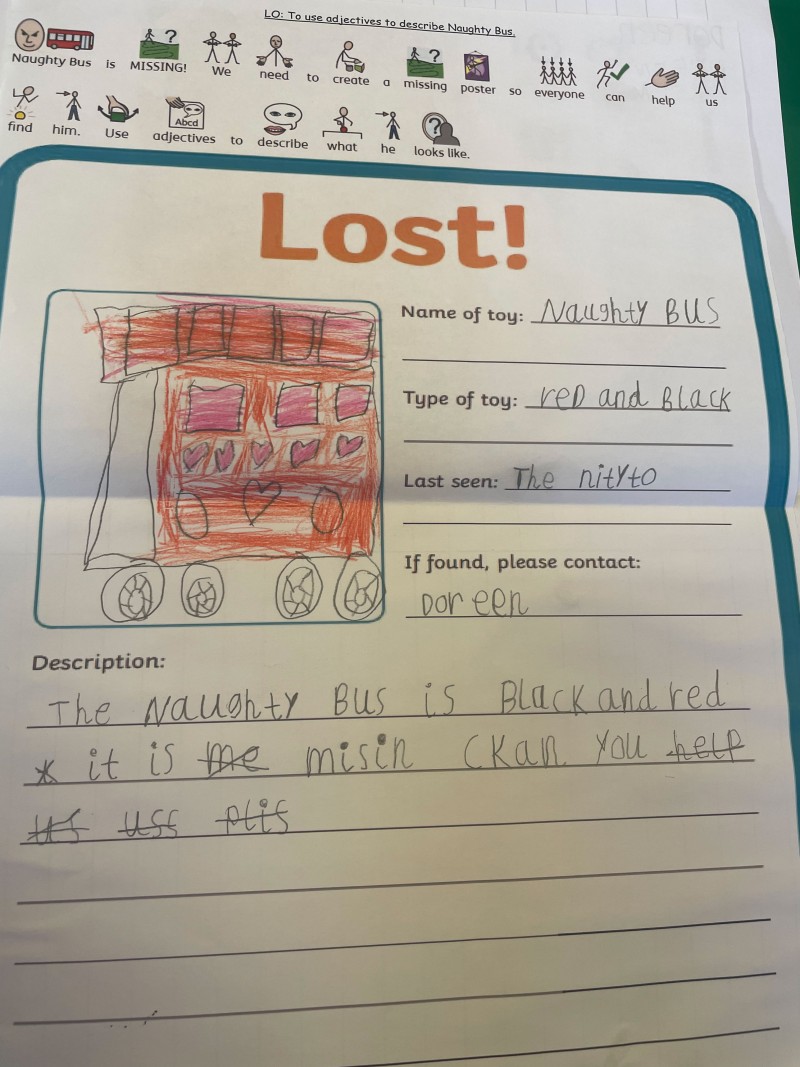 LO: To use adjectives to describe Naughty Bus.
Naughty Bus is MISSING! We need to create a missing poster so everyone can help us
Abcd
find him. Use adjectives to describe what he looks like.
Lost!
Name of toy: Naughty Bus
Type of toy: reD and Black
Last seen: The nityto
If found, please contact:
Doreen
Description:
The Naughty Bus is Black and red
it is me misin Ckan you help
us uss plis